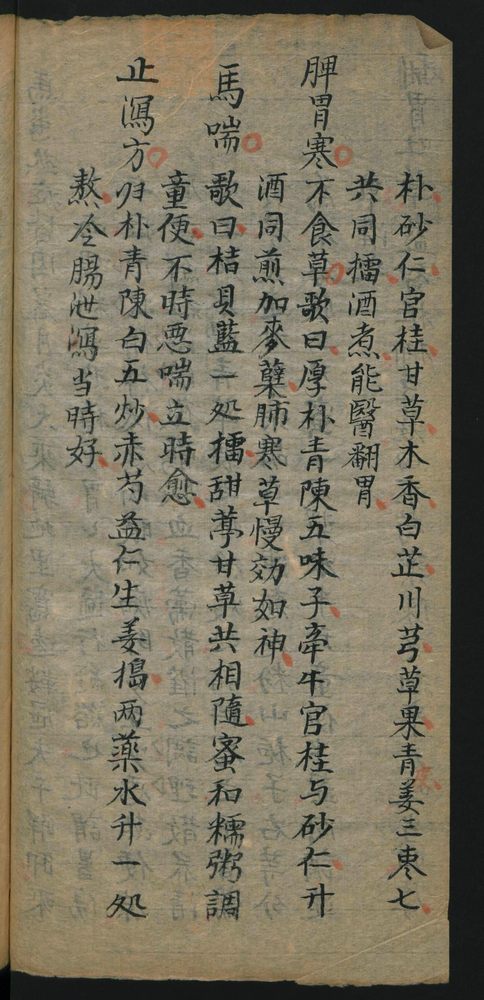 朴砂仁官桂甘草木香白芷川芎草果青姜三枣七
共同擂酒煮能醫翻胃
脾胃寒不食草歌曰厚朴青陳五味子牵牛官桂与砂仁升
酒同煎加麥蘖肺寒草慢効如神
馬喘歌曰桔貝藍一处擂甜葶甘草共相隨蜜和糯粥調
童便不時悪喘立時愈
止瀉方归朴青陳白五炒赤芍益仁生姜搗两藥水升一处
熬冷腸泄瀉当時好